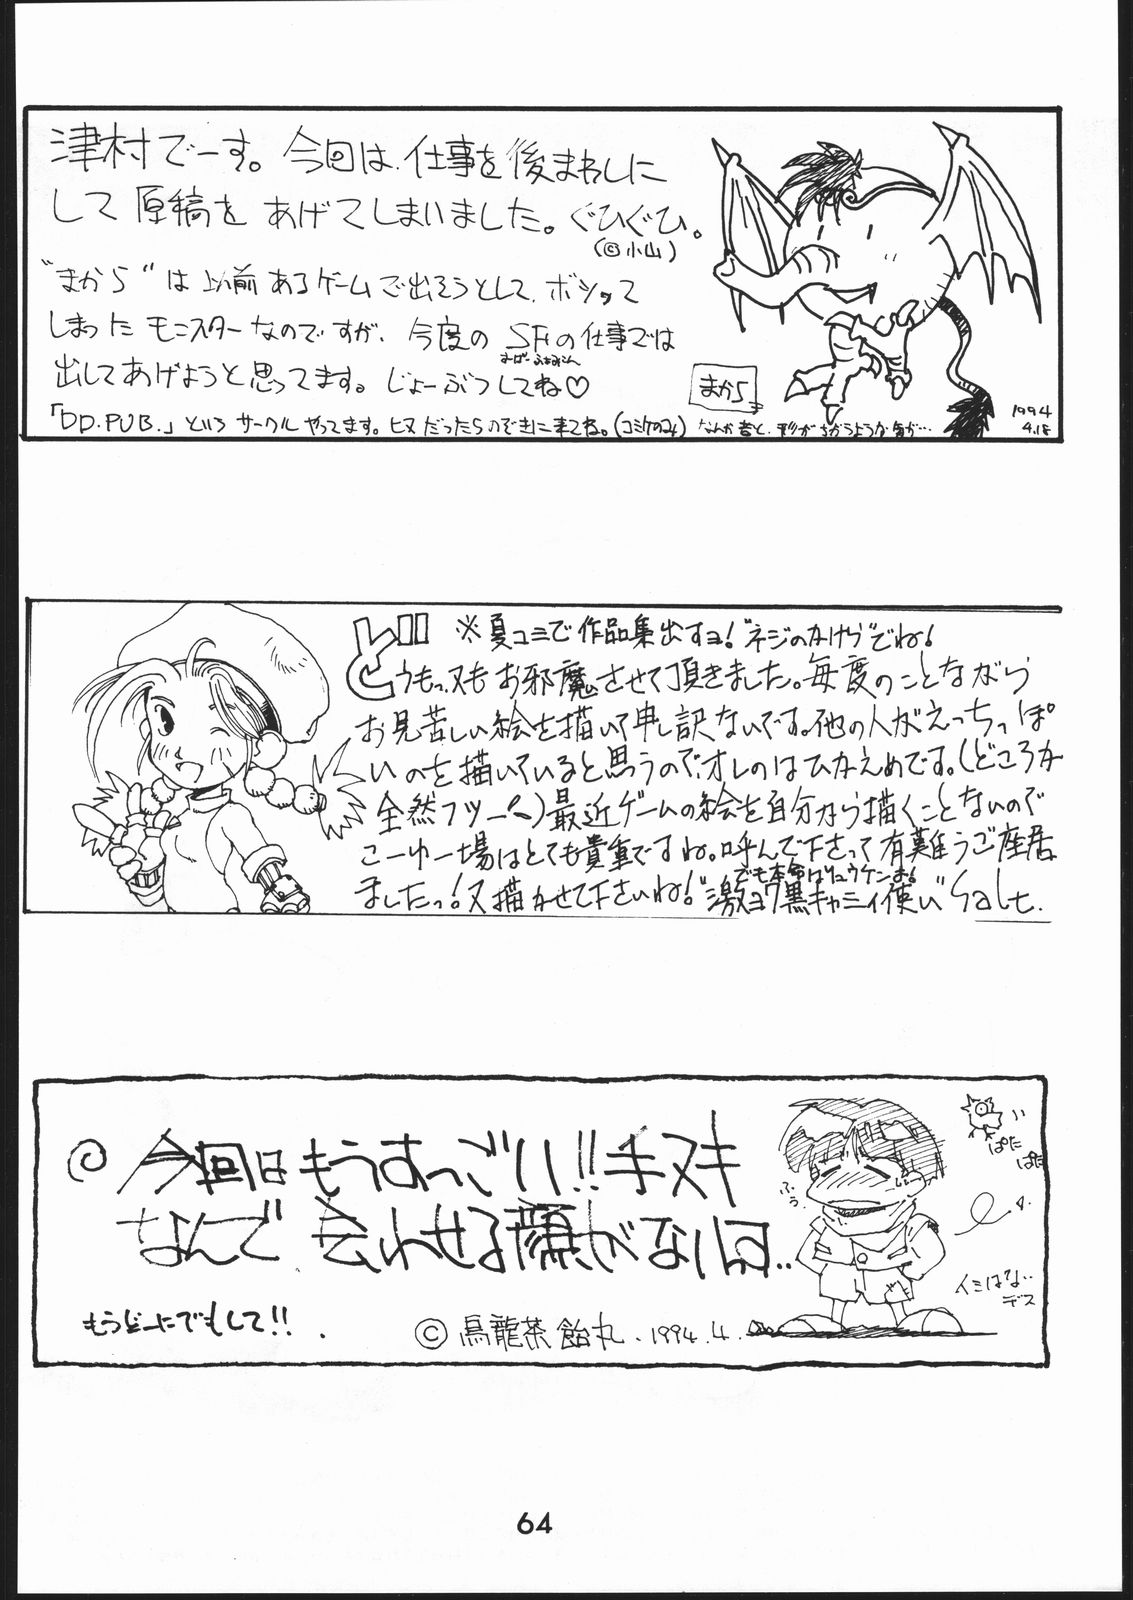 津村でーす。今回は、仕事を後まわしに
して原稿をあげてしまいました。ぐひぐひ。
(©小山)
"まから"は以前あるゲームで出そうとして、ボシって
しまったモニスターなのですが、今度のSFの仕事では
すーぱーふぁみこん
出してあげようと思ってます。じょーぶつしてね♡
「DD.PUB.」というサークルやってます。ヒマだったらのぞきに来てね。(コミケのみ) なんか昔と、形がちがうような気が…
まから
1994
4.18
※夏コミで作品集出すヨ!"ネジのかけら"でね!
どうもっ、又もお邪魔させて頂きました。毎度のことながら
お見苦しい絵を描いて申し訳ないです。他の人がえっちっぽ
いのを描いていると思うので、オレのはひかえめです。(どころか
全然フツーへ)最近ゲームの絵を自分から描くことないので
こーゆー場はとても貴重ですね。呼んで下さって有難うご座居
ましたっ!又描かせて下さいね!"激ヨワ黒キャミィ使い"Salt.
でも本命はリュウケンよ!
今回はもうすっごい!!手ヌキ
なんで会わせる顔がないほ..
もうどーにでもして!!.
©烏龍茶飴丸.1994.4.
ふぅ.
ぱた
ぱた
イミはない..
デス
64